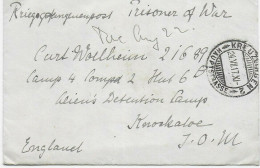 Kriegsgefangenenpost Prisoner of War
Rec Aug 22.
Curt Wollheim 21689
Camp 4 Comp 2 Hut 6B
Aliens Detention Camp
Knockaloe
England I.O.M